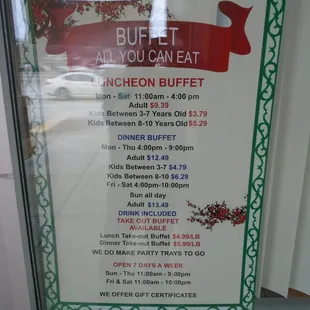 BUFFET
ALL YOU CAN EAT
LUNCHEON BUFFET
Mon - Sat 11:00am - 4:00 pm
Adult $9.39
Kids Between 3-7 Years Old $3.79
Kids Between 8-10 Years Old $5.29
DINNER BUFFET
Mon - Thu 4:00pm - 9:00pm
Adult $12.49
Kids Between 3-7 $4.79
Kids Between 8-10 $6.29
Fri - Sat 4:00pm-10:00pm
Sun all day
Adult $13.49
DRINK INCLUDED
TAKE OUT BUFFET
AVAILABLE
Lunch Take-out Buffet $4.99/LB
Dinner Take-out Buffet $5.99/LB
WE DO MAKE PARTY TRAYS TO GO
OPEN 7 DAYS A WEEK
Sun - Thu 11:00am - 9:00pm
Fri & Sat 11:00am - 10:00pm
WE OFFER GIFT CERTIFICATES